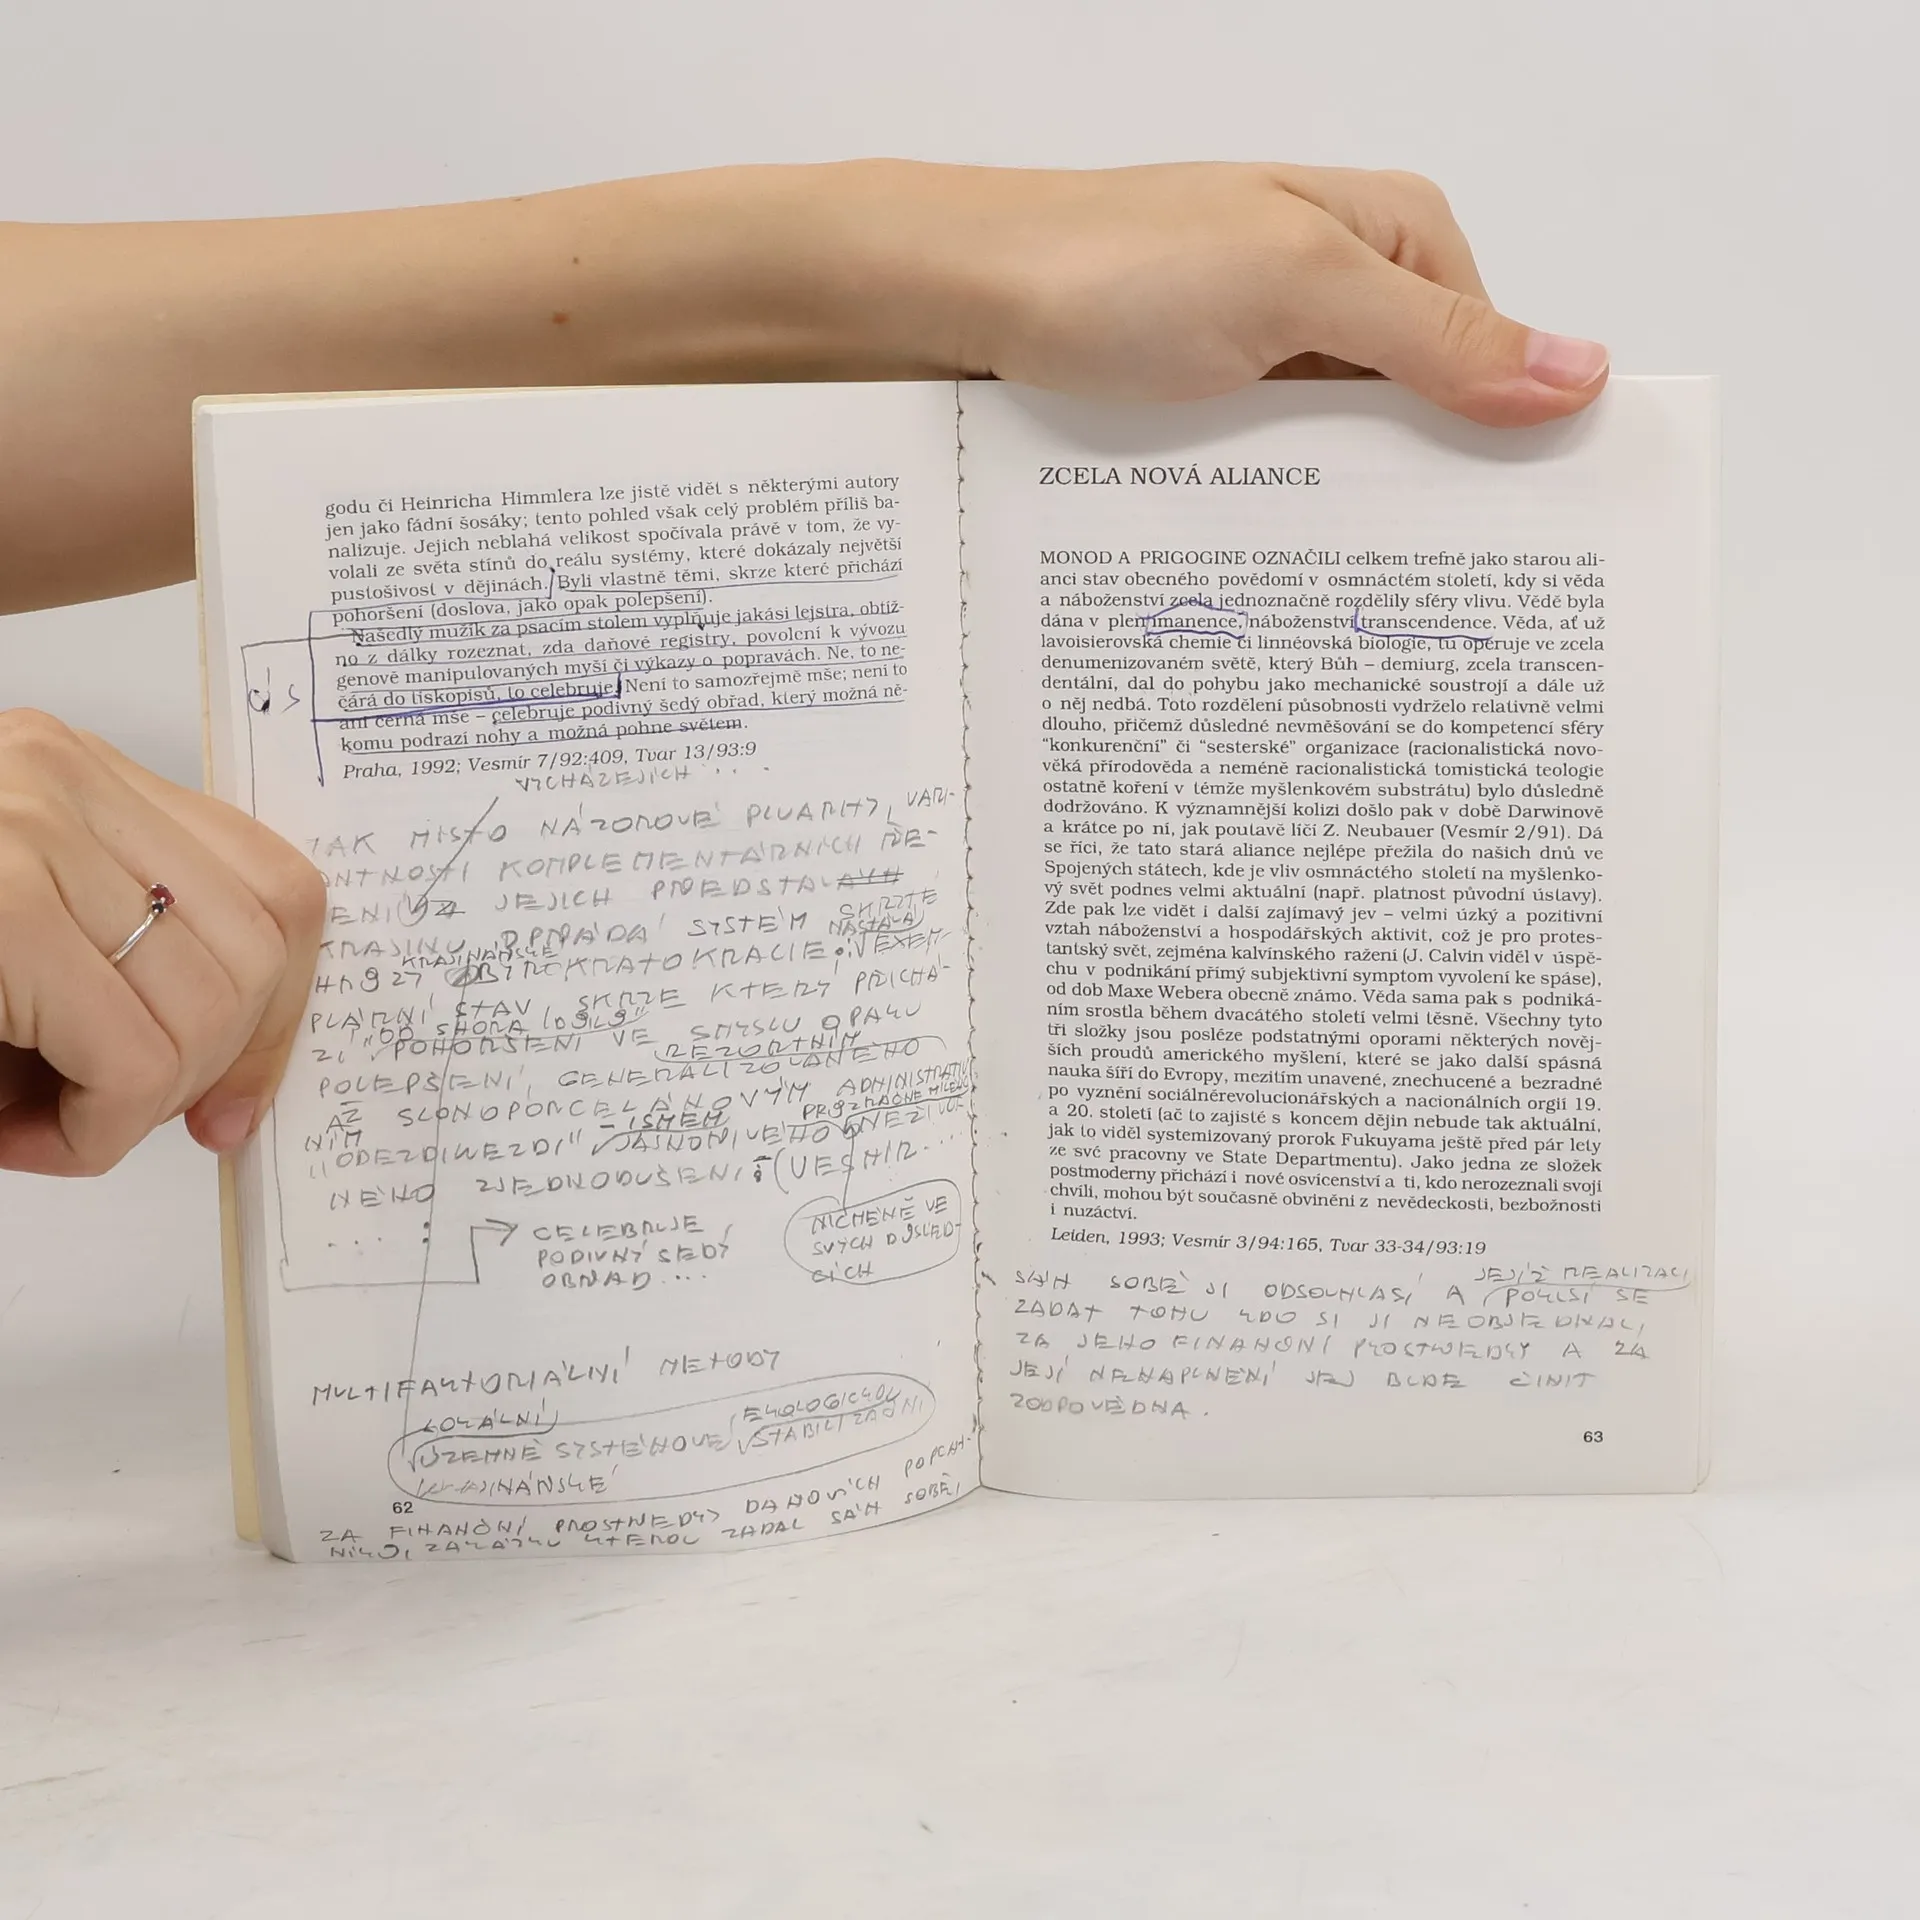 godu či Heinricha Himmlera lze jistě vidět s některými autory
jen jako fádní šosáky; tento pohled však celý problém příliš ba-
nalizuje. Jejich neblahá velikost spočívala právě v tom, že vy-
volali ze světa stínů do reálu systémy, které dokázaly největší
pustošivost v dějinách. Byli vlastně těmi, skrze které přichází
pohoršení (doslova, jako opak polepšení).
Našedlý mužík za psacím stolem vyplňuje jakási lejstra, obtíž-
no z dálky rozeznat, zda daňové registry, povolení k vývozu
genově manipulovaných myší či výkazy o popravách. Ne, to ne-
čárá do tiskopisů, to celebruje. Není to samozřejmě mše; není to
ani černá mše – celebruje podivný šedý obřad, který možná ně-
komu podrazí nohy a možná pohne světem.
Praha, 1992; Vesmír 7/92:409, Tvar 13/93:9
VYCHÁZEJÍCÍCH ...
TAK MÍSTO NÁZOROVÉ PLURARITY, VARI-
ANTNOSTI KOMPLEMENTÁRNÍCH ŘE-
ŠENÍ JEJICH PŘEDSTAV
KRAJINU OPŘÁDÁ SYSTÉM SKRZTE
KRAJINÁŘSKÉ NASTALÁ
BYROKRATOKRACIE : EXEM-
PLÁRNÍ STAV, SKRZE KTERÝ PŘICHÁ-
"OD SHORA DOLŮ"
ZÍ POHORŠENÍ VE SMYSLU OPAKU
REZORTNÍM
POLEPŠENÍ, GENERALIZOVANÉHO
AŽ SLONOPORCELÁNOVÝM ADMINISTRATIV
NÍM - ISMEM
"ODEZDIKEZDI" JASNONIVÉHO
NÉHO ZJEDNODUŠENÍ : (VESMÍR ...
NICMÉNĚ VE
SVÝCH DŮSLED-
CÍCH
... : CELEBRUJE
PODIVNÝ ŠEDÝ
OBŘAD ....
MULTIFAKTORIÁLNÍ METODY
LOKÁLNÍ EKOLOGICKOU
ÚZEMNĚ SYSTÉMOVÉ STABILIZAČNÍ
KRAJINÁŘSKÉ
62
ZA FINANČNÍ PROSTŘEDKY DAŇOVÝCH POPLAT-
NÍKŮ, ZAKÁZKU KTEROU ZADAL SÁM SOBĚ,
ZCELA NOVÁ ALIANCE
MONOD A PRIGOGINE OZNAČILI celkem trefně jako starou ali-
anci stav obecného povědomí v osmnáctém století, kdy si věda
a náboženství zcela jednoznačně rozdělily sféry vlivu. Vědě byla
dána v plen imanence, náboženství transcendence. Věda, ať už
lavoisierovská chemie či linnéovská biologie, tu operuje ve zcela
denumenizovaném světě, který Bůh – demiurg, zcela transcen-
dentální, dal do pohybu jako mechanické soustrojí a dále už
o něj nedbá. Toto rozdělení působnosti vydrželo relativně velmi
dlouho, přičemž důsledné nevměšování se do kompetencí sféry
“konkurenční” či “sesterské” organizace (racionalistická novo-
věká přírodověda a neméně racionalistická tomistická teologie
ostatně koření v témže myšlenkovém substrátu) bylo důsledně
dodržováno. K významnější kolizi došlo pak v době Darwinově
a krátce po ní, jak poutavě líčí Z. Neubauer (Vesmír 2/91). Dá
se říci, že tato stará aliance nejlépe přežila do našich dnů ve
Spojených státech, kde je vliv osmnáctého století na myšlenko-
vý svět podnes velmi aktuální (např. platnost původní ústavy).
Zde pak lze vidět i další zajímavý jev – velmi úzký a pozitivní
vztah náboženství a hospodářských aktivit, což je pro protes-
tantský svět, zejména kalvínského ražení (J. Calvin viděl v úspě-
chu v podnikání přímý subjektivní symptom vyvolení ke spáse),
od dob Maxe Webera obecně známo. Věda sama pak s podniká-
ním srostla během dvacátého století velmi těsně. Všechny tyto
tři složky jsou posléze podstatnými oporami některých nověj-
ších proudů amerického myšlení, které se jako další spásná
nauka šíří do Evropy, mezitím unavené, znechucené a bezradné
po vyznění sociálněrevolucionářských a nacionálních orgií 19.
a 20. století (ač to zajisté s koncem dějin nebude tak aktuální,
jak to viděl systemizovaný prorok Fukuyama ještě před pár lety
ze své pracovny ve State Departmentu). Jako jedna ze složek
postmoderny přichází i nové osvícenství a ti, kdo nerozeznali svoji
chvíli, mohou být současně obviněni z nevědeckosti, bezbožnosti
i nuzáctví.
Leiden, 1993; Vesmír 3/94:165, Tvar 33-34/93:19
JEJÍŽ REALIZACI
SÁM SOBĚ JI ODSOUHLASÍ A POKUSÍ SE
ZADAT TOMU KDO SI JI NEOBJEDNAL,
ZA JEHO FINANČNÍ PROSTŘEDKY A ZA
JEJÍ NENAPLNĚNÍ JEJ BUDE ČINIT
ZODPOVĚDNA.
63